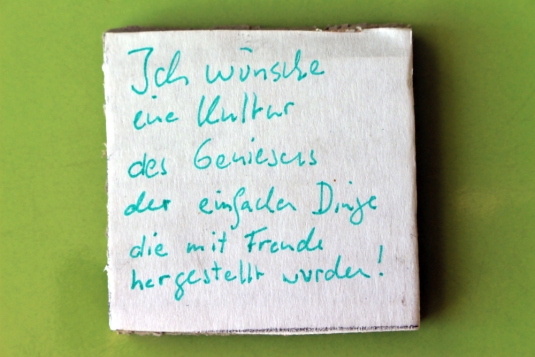 Ich wünsche
eine Kultur
des Geniesens
der einfachen Dinge
die mit Freude
hergestellt wurden!